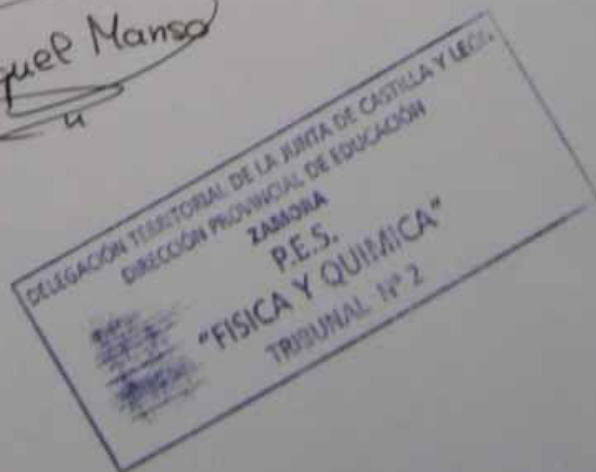 quel Manso
DELEGACIÓN TERRITORIAL DE LA JUNTA DE CASTILLA Y LEÓN
DIRECCIÓN PROVINCIAL DE EDUCACIÓN
ZAMORA
P.E.S.
"FISICA Y QUIMICA"
TRIBUNAL Nº 2